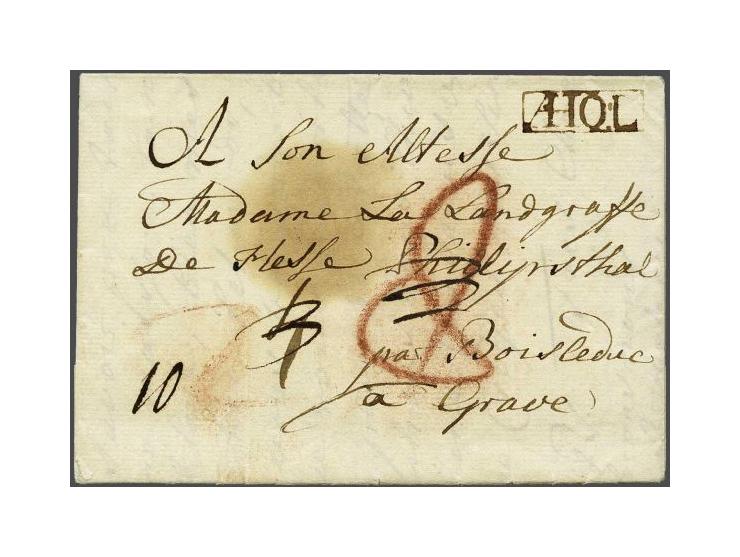 AHQL
A Son Altesse
Madame La Landgraffe
De Hesse Philipsthal
par Boisleduc
10
a Grave